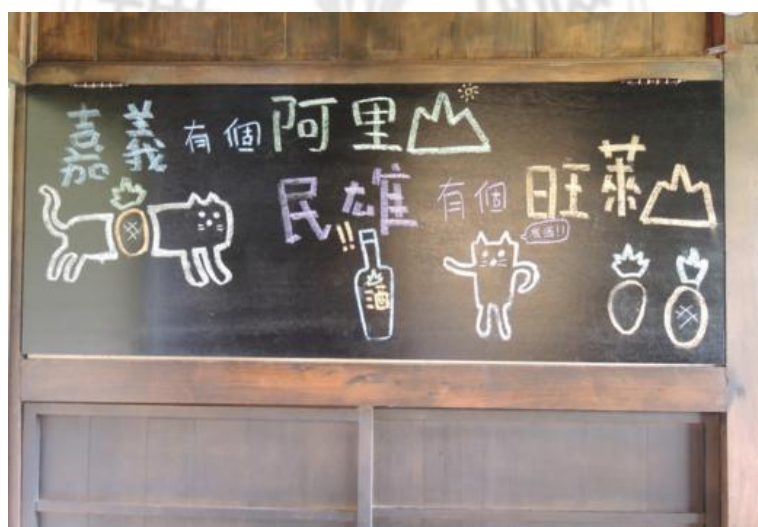 嘉義有個阿里山
民雄有個旺萊山
酒